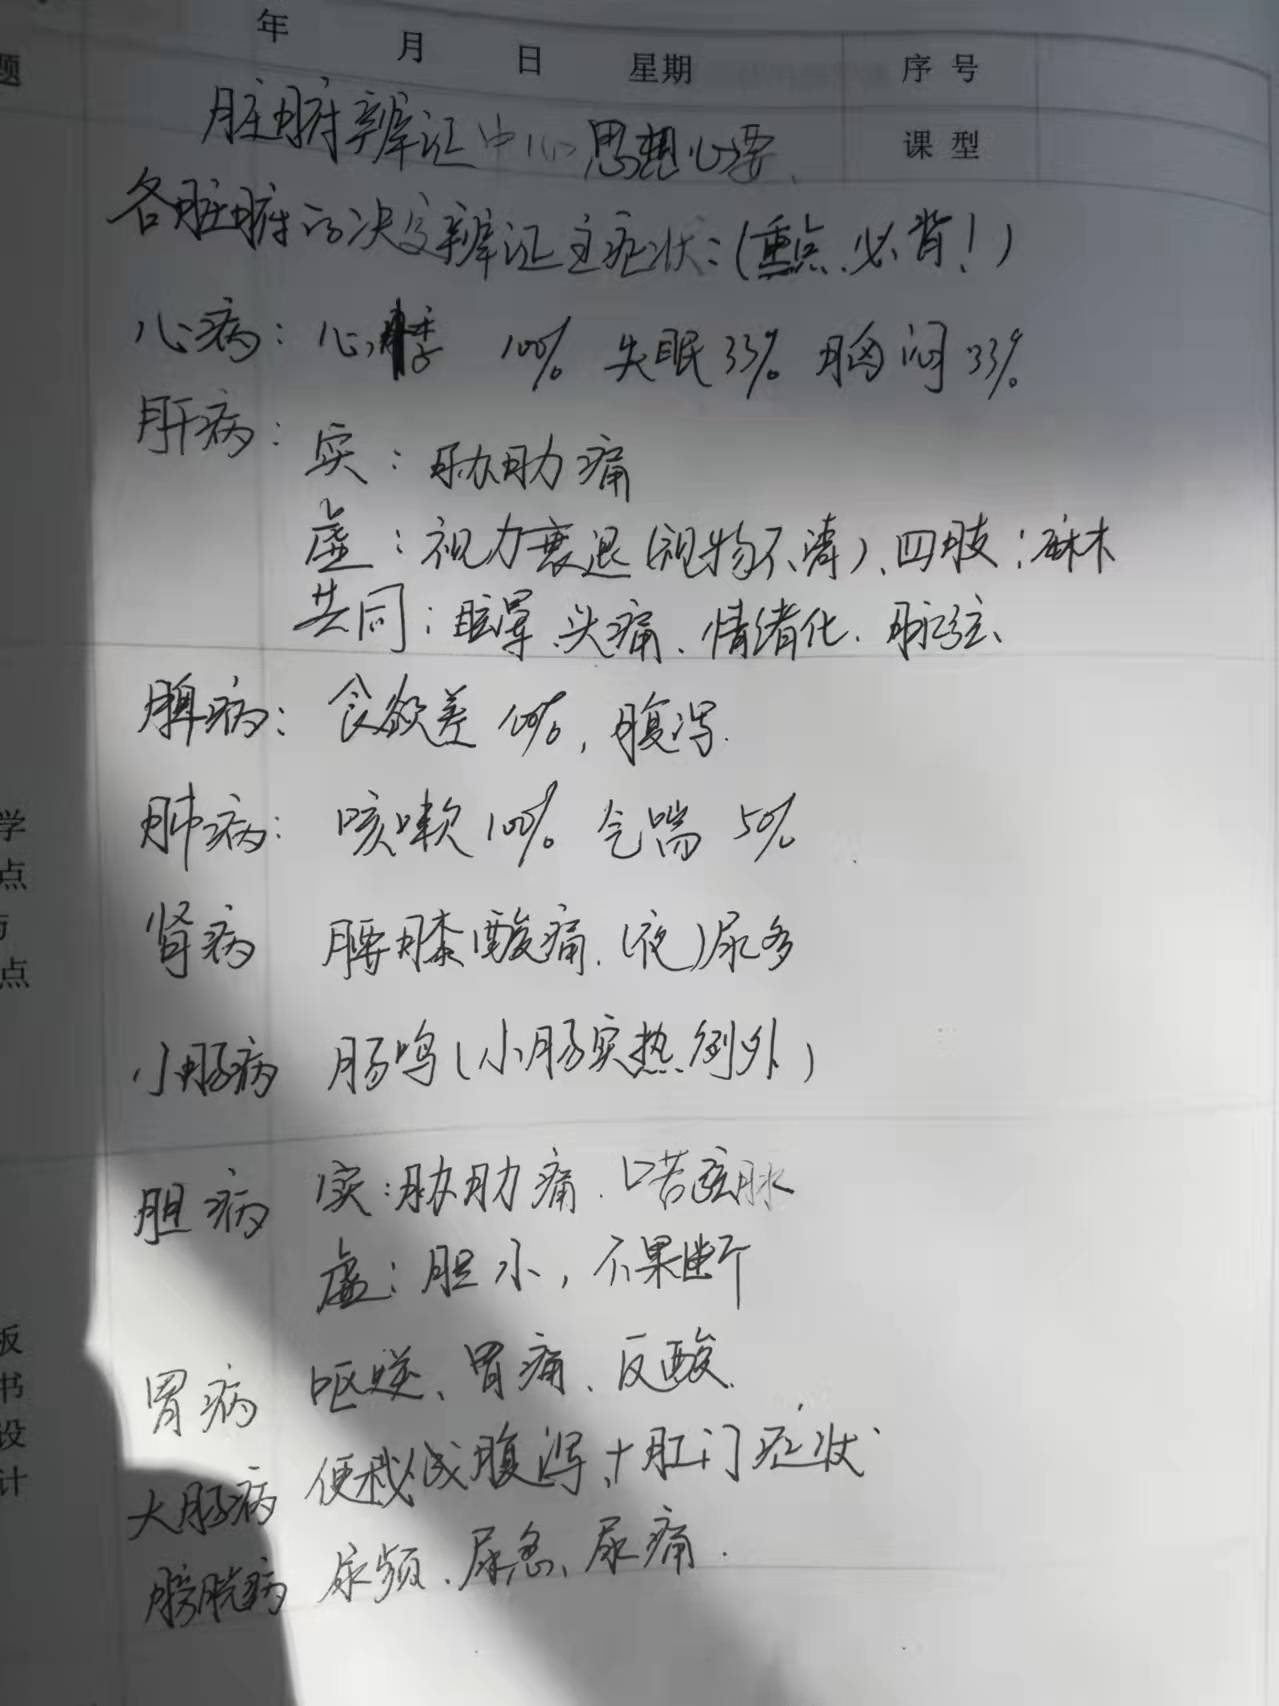 年 月 日 星期 序号
题
脏腑辨证中心思想心要.
课型
各脏腑的决定辨证主症状:(重点、必背!)
心病: 心悸 100% 失眠33% 胸闷33%
肝病:
实: 胁肋痛
虚: 视力衰退(视物不清)、四肢: 麻木
共同: 眩晕、头痛、情绪化、脉弦、
脾病: 食欲差 100%, 腹泻.
肺病: 咳嗽100% 气喘 50%
学
点
肾病 腰膝酸痛、(夜)尿多
点
小肠病 肠鸣(小肠实热例外)
胆病 实: 胁肋痛、口苦弦脉
虚: 胆小, 不果断
板
胃病 呕逆、胃痛、反酸.
书
设
大肠病 便秘或腹泻,+肛门症状
计
膀胱病 尿频、尿急、尿痛.